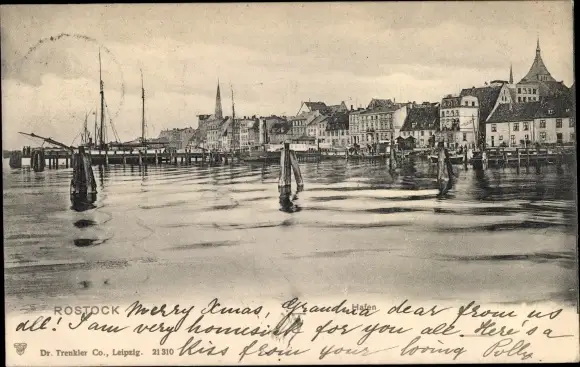 ROSTOCK Hafen
Merry Xmas, Grandma dear from us
all! I am very homesick for you all. Here's a
Dr. Trenkler Co., Leipzig. 21310 Kiss from your loving Polly.